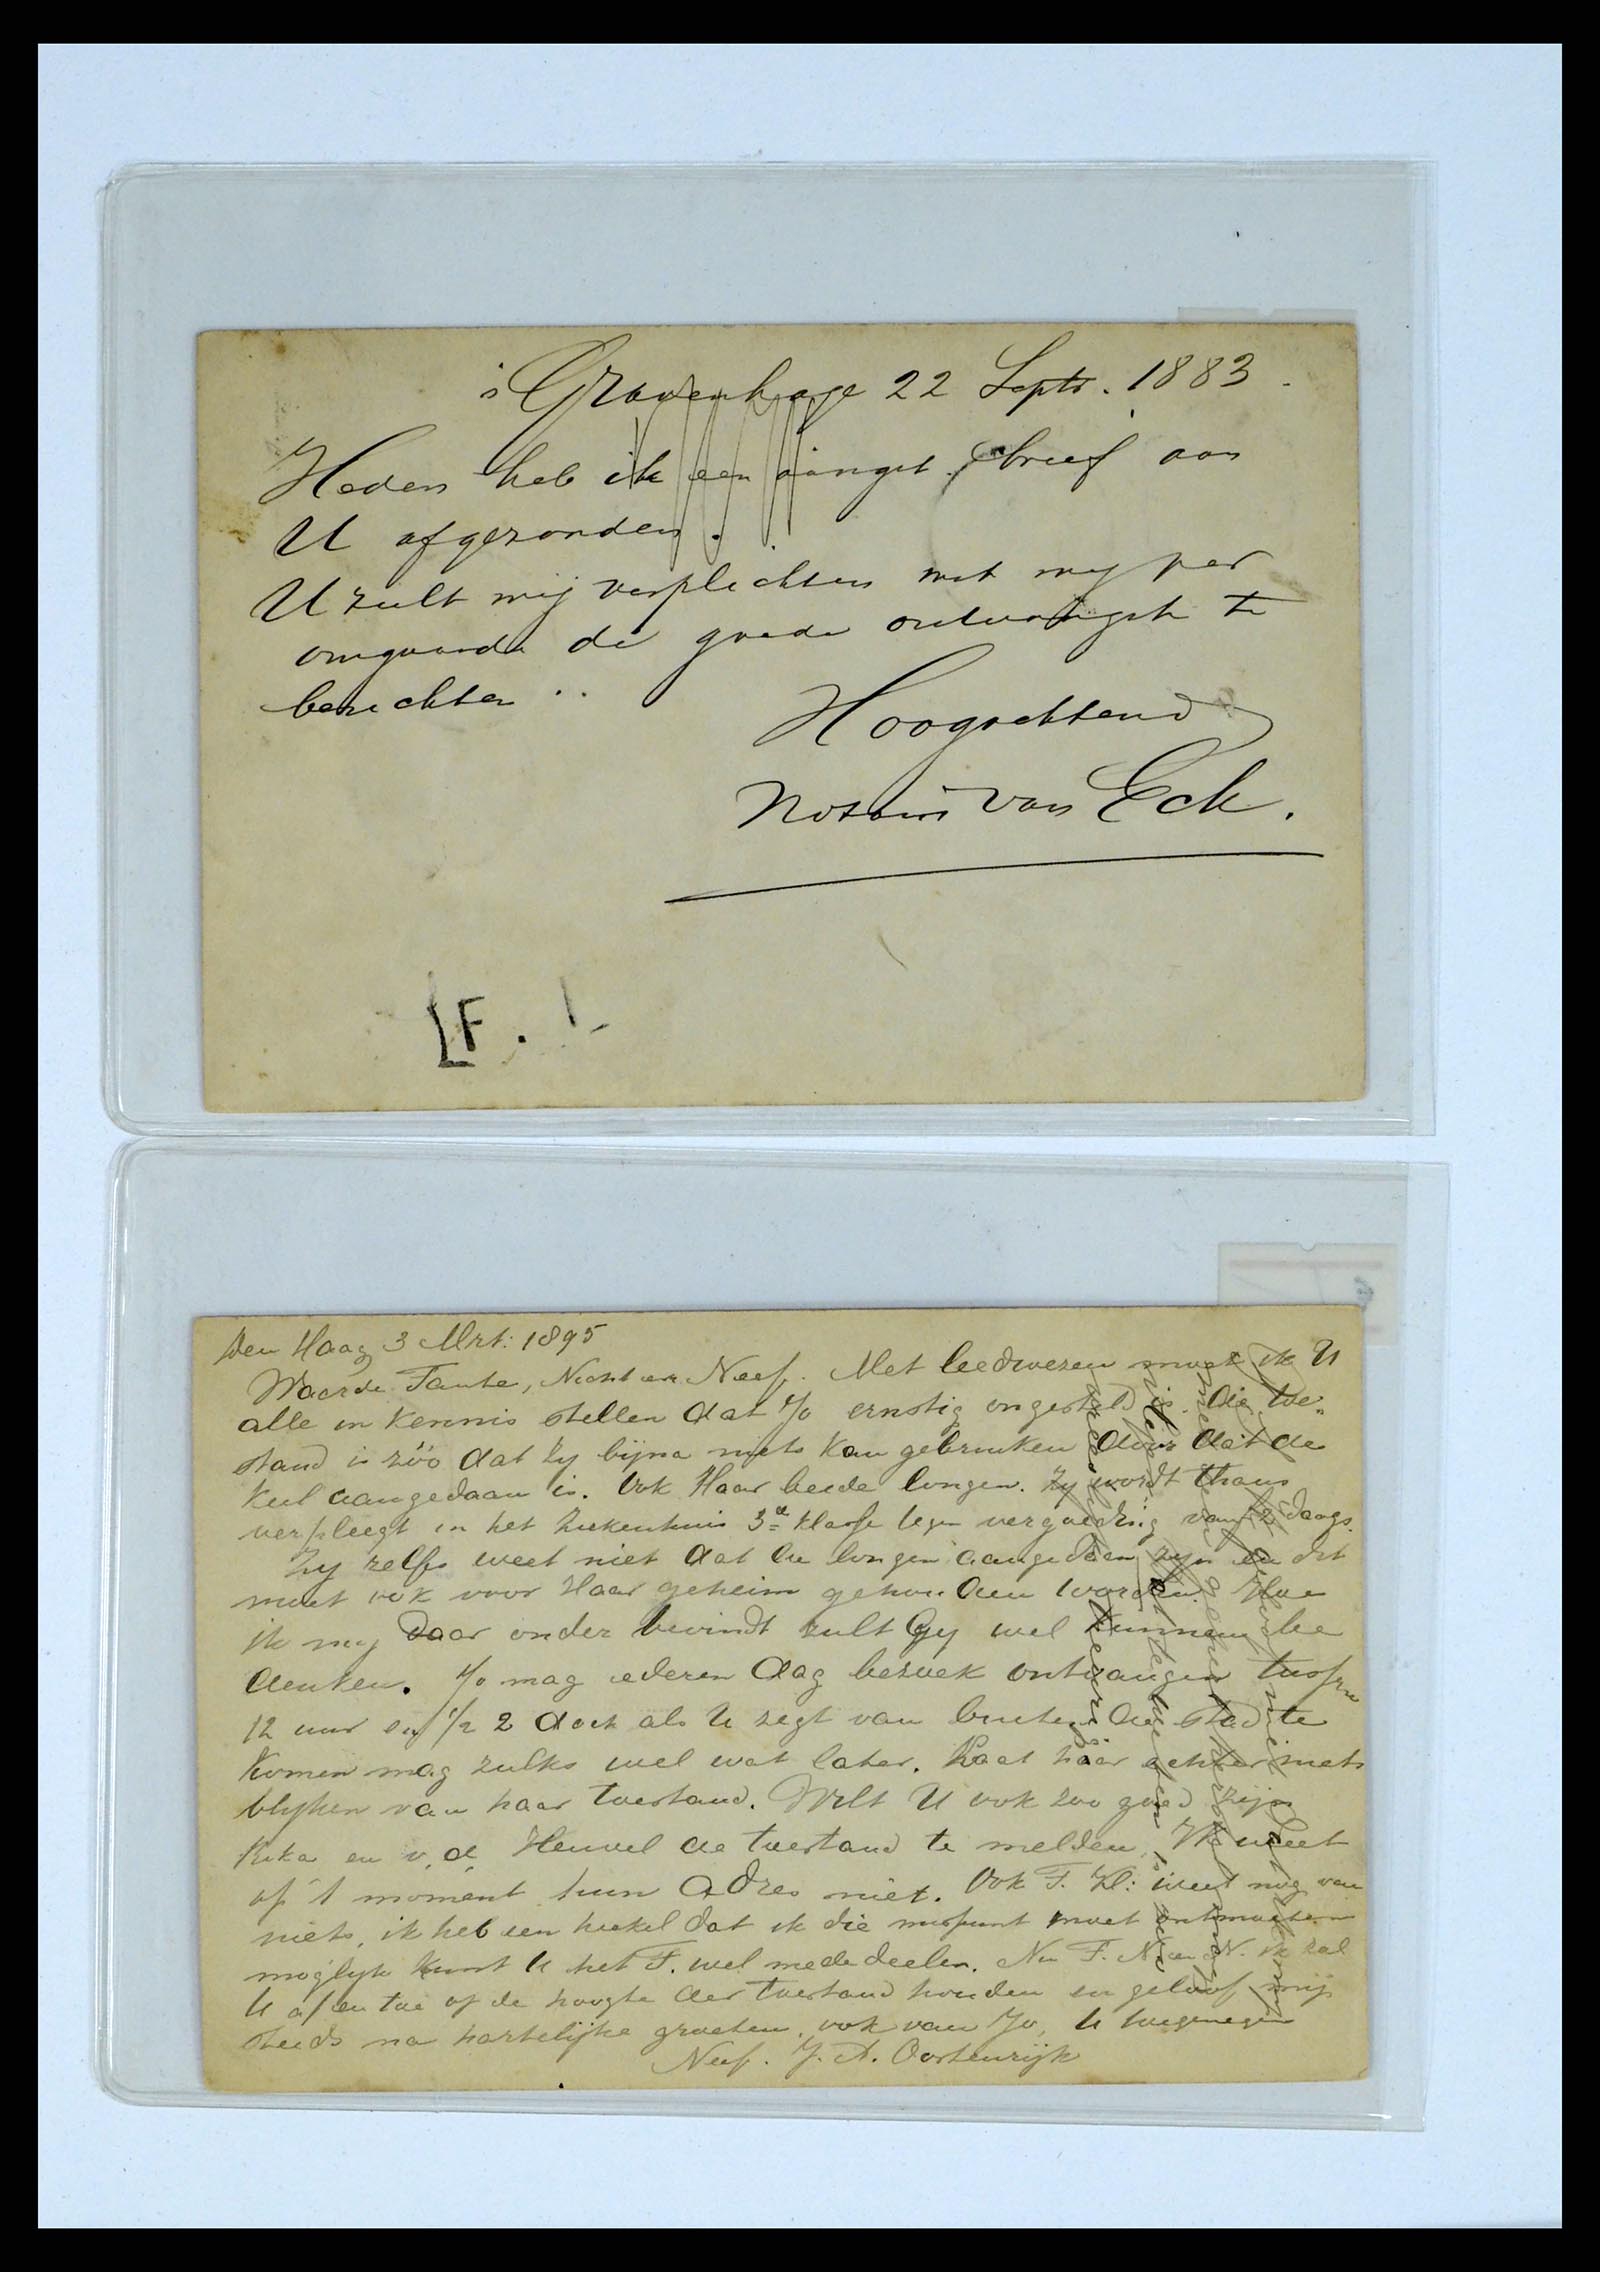 s Gravenhage 22 Septr. 1883
Heden heb ik een aanget. brief aan
U afgezonden.
U zult mij verplichten met mij per
omgaande de goede ontvangst te
berichten
Hoogachtend
Notaris van Eck.
F.
Den Haag 3 Mrt: 1895
Waarde Tante, Nicht en Neef. Met leedwezen moet ik U
alle in kennis stellen dat Jo ernstig ongesteld is. Die toe-
stand is zóo dat zy bijna niets kan gebruiken door dat de
keel aangedaan is. Ook Haar beide longen. Zy wordt thans
verpleegt in het Ziekenhuis 3de klasse tegen vergoeding van daags.
Zy zelfs weet niet dat de longen aangedaan zyn en dit
moet ook voor Haar geheim gehouden worden. Hoe
ik my daar onder bevindt zult Gy wel kunnen be
denken. Jo mag iederen dag bezoek ontvangen tussen
12 uur en 1/2 2 doch als U zegt van buiten de stad te
komen mag zulks wel wat later. Laat haar echter niets
blyken van haar toestand. Wilt U ook zoo goed zijn
Rika en v. d. Heuvel de toestand te melden, Ik weet
op 't moment hun Adres niet. Ook F. weet nog van
niets, ik heb een hekel dat ik die moet ontmoeten
moglyk kunt U het F. wel mededeelen. Nu T. N. en N. ik zal
U af en toe op de hoogte der toestand houden en geloof mij
steeds na hartelijke groeten, ook van Jo, U toegenegen
Neef. J. A. Oostenrijk